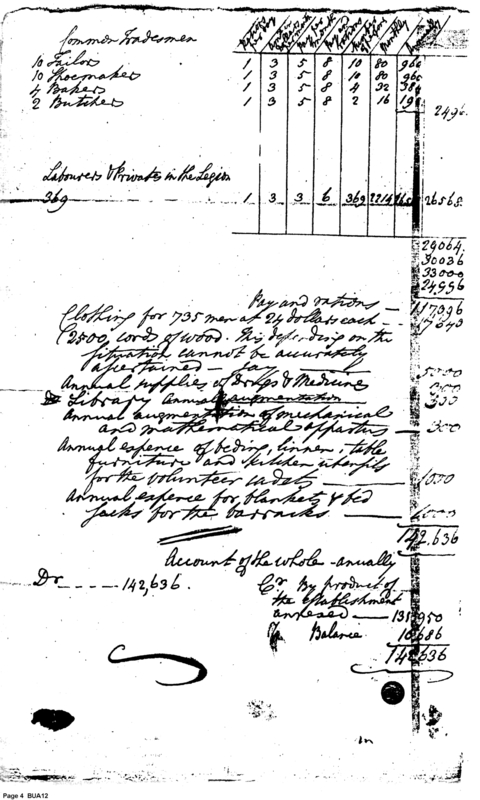 Common Tradesmen
10 Tailors 1 3 5 8 10 80 960
10 Shoemakers 1 3 5 8 10 80 960
4 Bakers 1 3 5 8 4 32 384
2 Butchers 1 3 5 8 2 16 192
2496
Labourers & Privates in the Legion
369 1 3 3 6 369 2214 26568
29064.
30036
33000
24996
Pay and rations — 117,096
Clothing for 735 men at 24 dollars each — 17640
2500 cords of wood. This depending on the
situation cannot be accurately
ascertained — say 5000
Annual supplies of drugs & Medicine
Library annual augmentation 300
Annual augmentation of mechanical
and mathematical apparatus — 300
Annual expence of beding, linnen, table
furniture and kitchen utensils
for the volunteer cadets — 1000
Annual expence for blankets & bed
sacks for the barracks — 1000
142.636
Account of the whole - annually
Dr — 142,636. Cr By product of
the establishment
annexed — 131,950
Balance 10,686
142636
Page 4 BUA12